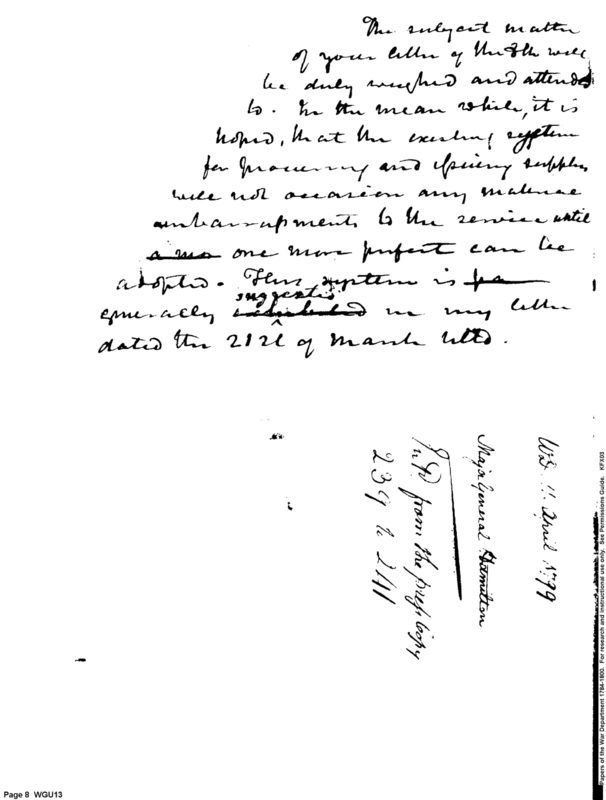 The subject matter
of your letter of the 8th will
be duly weighed and attended
to. In the mean while, it is
hoped, that the existing system
for procuring and issuing supplies
will not occasion any material
embarrassments to the service until
a mo one more perfect can be
adopted. This system is pa
suggested
generally in my letter
dated the 21st of March ulto.
WD. 11 April 1799
Major General Hamilton
from the press copy
239 to 241
Page 8 WGU13
Papers of the War Department 1784-1800. For research and instructional use only. See Permissions Guide. KFX03